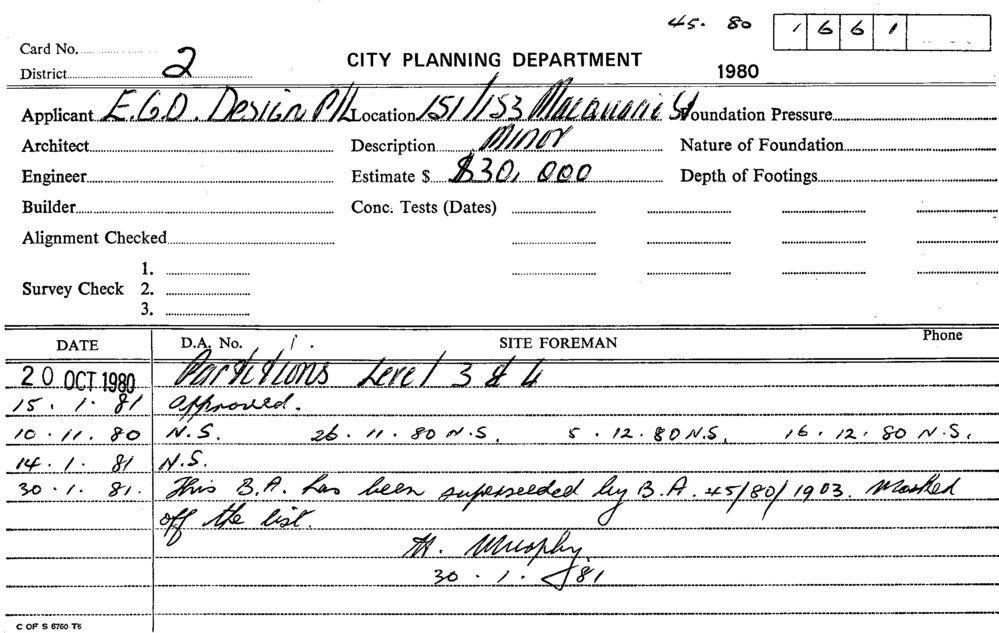 45. 80 1661
Card No.
District 2
CITY PLANNING DEPARTMENT
1980
Applicant E.G.O. Design P/L Location 151/153 Macquarie St Foundation Pressure
Architect Description Minor Nature of Foundation
Engineer Estimate $ $30,000 Depth of Footings
Builder Conc. Tests (Dates)
Alignment Checked
1.
Survey Check 2.
3.
DATE D.A. No. SITE FOREMAN Phone
20 OCT 1980 Partitions Level 3 & 4
15. 1. 81 approved.
10. 11. 80 N.S. 26. 11. 80 N.S. 5. 12. 80 N.S. 16. 12. 80 N.S.
14. 1. 81 N.S.
30. 1. 81. This B.A. has been superseeded by B.A. 45/80/1903. Marked
off the list.
M. Murphy.
30. 1. 81
C OF S 6760 T6